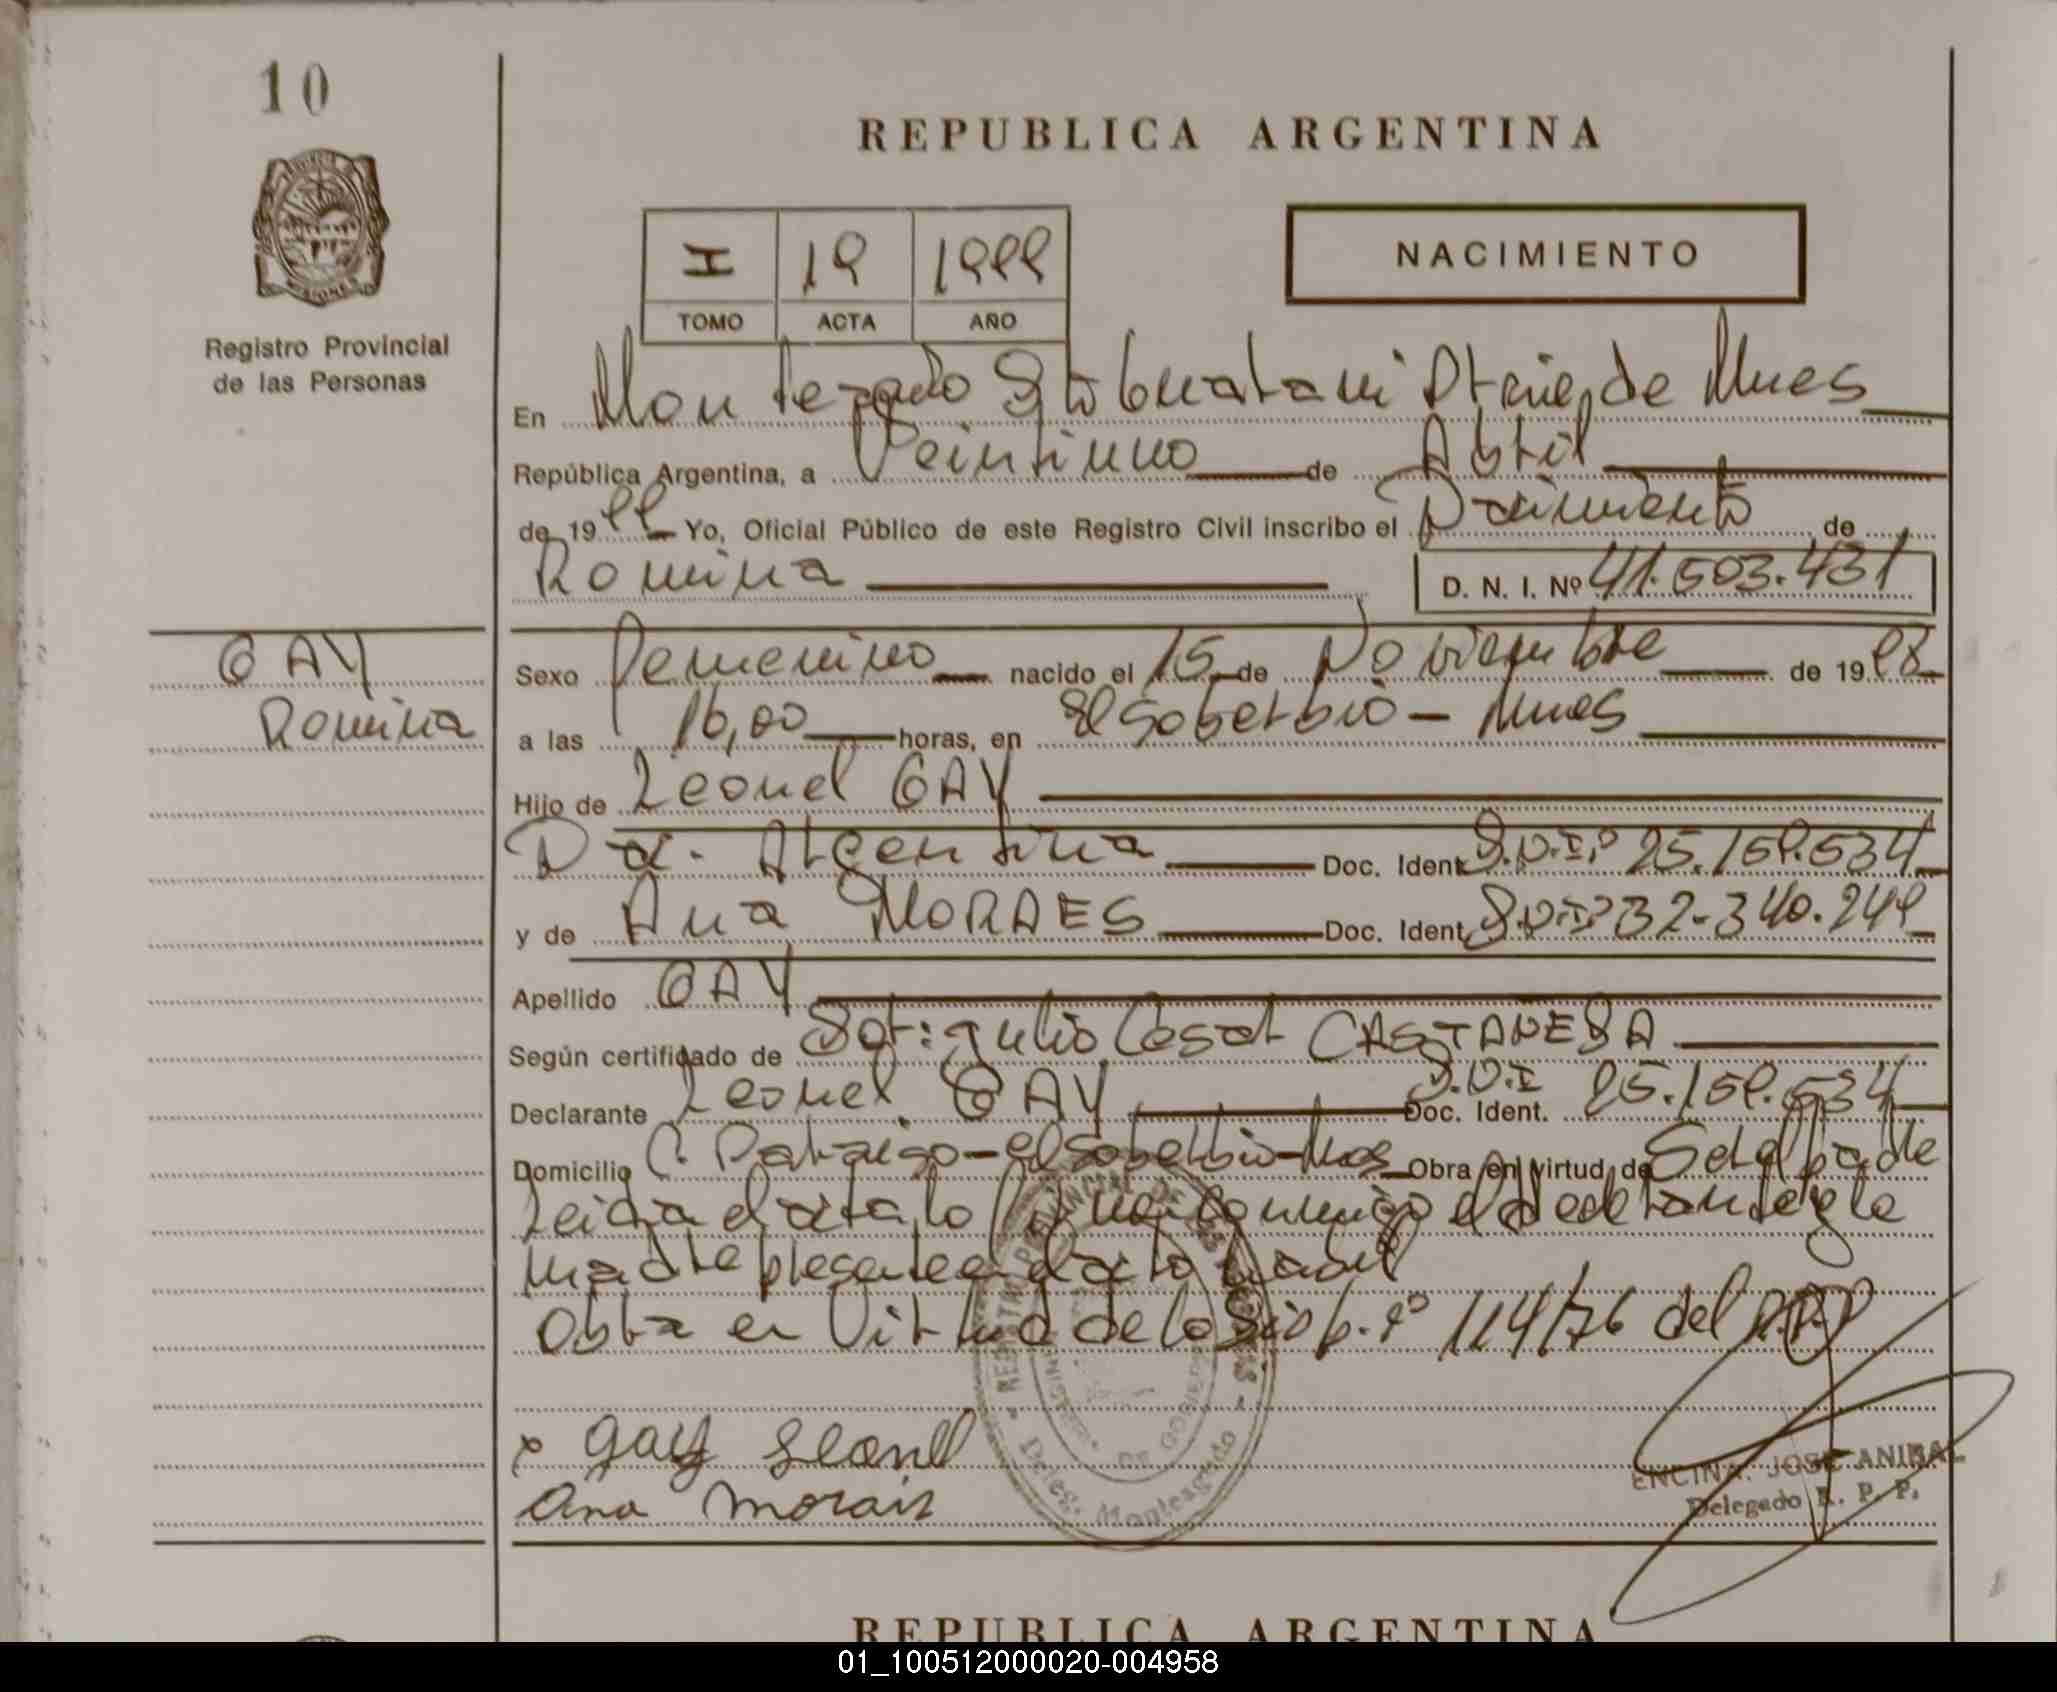 10
REPUBLICA ARGENTINA
NACIMIENTO
I 19 1999
TOMO ACTA AÑO
Registro Provincial
de las Personas
En Monteagudo Dto Guarani Pcia, de Mnes
República Argentina, a Veintiuno de Abril
de 1999 Yo, Oficial Público de este Registro Civil inscribo el Nacimiento de
Romina D. N. I. Nº 41.503.431
GAY
Romina
Sexo Femenino nacido el 15 de Noviembre de 1998
a las 16,00 horas, en El Soberbio - Mnes
Hijo de Leonel GAY
Nac. Argentina Doc. Ident. D.N.I.º 25.159.534
y de Ana MORAES Doc. Ident. D.N.Iº 32.340.249
Apellido GAY
Según certificado de Dor: Julio Cesar CASTANEDA
Declarante Leonel GAY Doc. Ident. D.N.I 25.159.534
Domicilio C. Paraiso - el Soberbio - Mnes Obra en virtud de Ser el padre
Leida el acta, lo conmigo el declarante y la
madre presente en el acto
Obra en Virtud de la Disp. nº 114/76 del R.P.P
x gay Leonel
Ana morais
REGISTRO PROVINCIAL DE LAS PERSONAS
MINISTERIO DE GOBIERNO
Deleg. Monteagudo
ENCINA JOSE ANIBAL
Delegado R. P. P.
REPUBLICA ARGENTINA
01_100512000020-004958